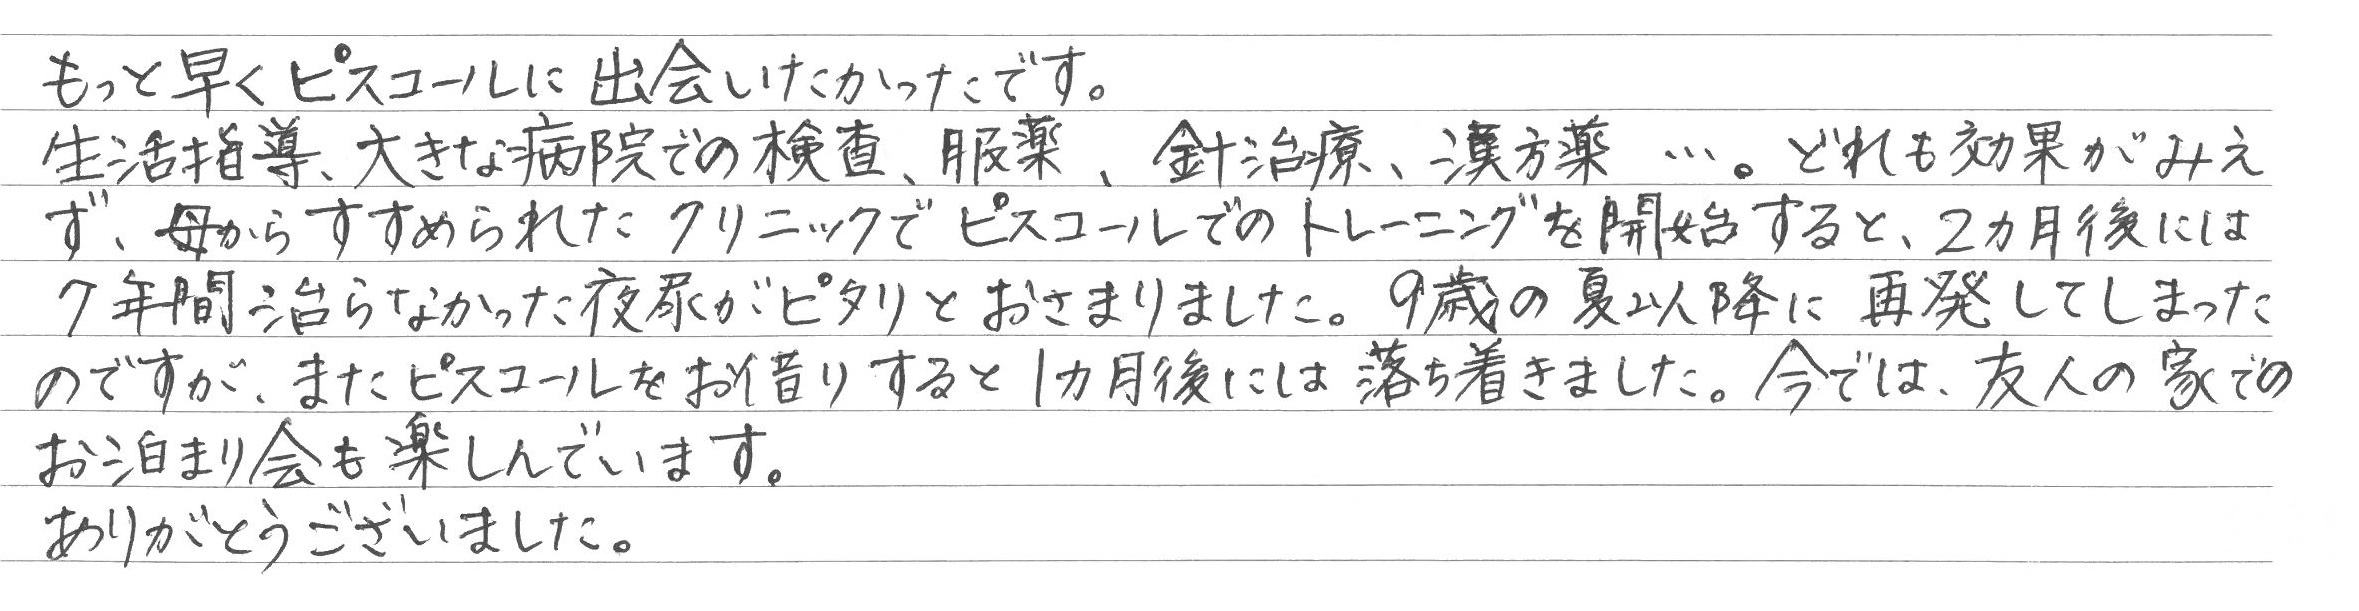 もっと早くピスコールに出会いたかったです。
生活指導、大きな病院での検査、服薬、針治療、漢方薬…。どれも効果がみえ
ず、母からすすめられたクリニックでピスコールでのトレーニングを開始すると、2カ月後には
7年間治らなかった夜尿がピタリとおさまりました。9歳の夏以降に再発してしまった
のですが、またピスコールをお借りすると1カ月後には落ち着きました。今では、友人の家での
お泊まり会も楽しんでいます。
ありがとうございました。